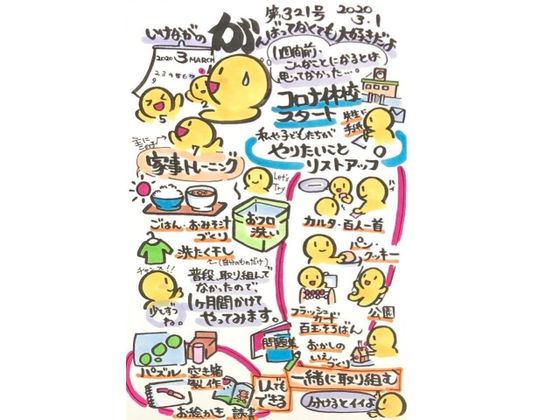 第321号 2020 3.1
いけながの がんばってなくても大好きだよ
2020 3 MARCH
1週間前、
こんなことになるとは
思ってなかった…。
コロナ休校
スタート
先生に
手紙
5
2
7
私や子どもたちが
やりたいこと
リストアップ
主に
家事トレーニング
Let's
Try
ごはん・おみそ汁
づくり
おフロ
洗い
洗たく干し
(自分のものだけ)
チャンス!!
普段、取り組んで
なかったので、
1ヶ月間かけて
やってみます。
少しずつ
ね。
カルタ・百人一首
パン・
クッキー
フラッシュ
カード
百玉そろばん
公園
おかしの
いえづくり
問題集
パズル
空き箱
製作
お絵かき
読書
1人でも
できる
一緒に取り組む
分けるとイイよ